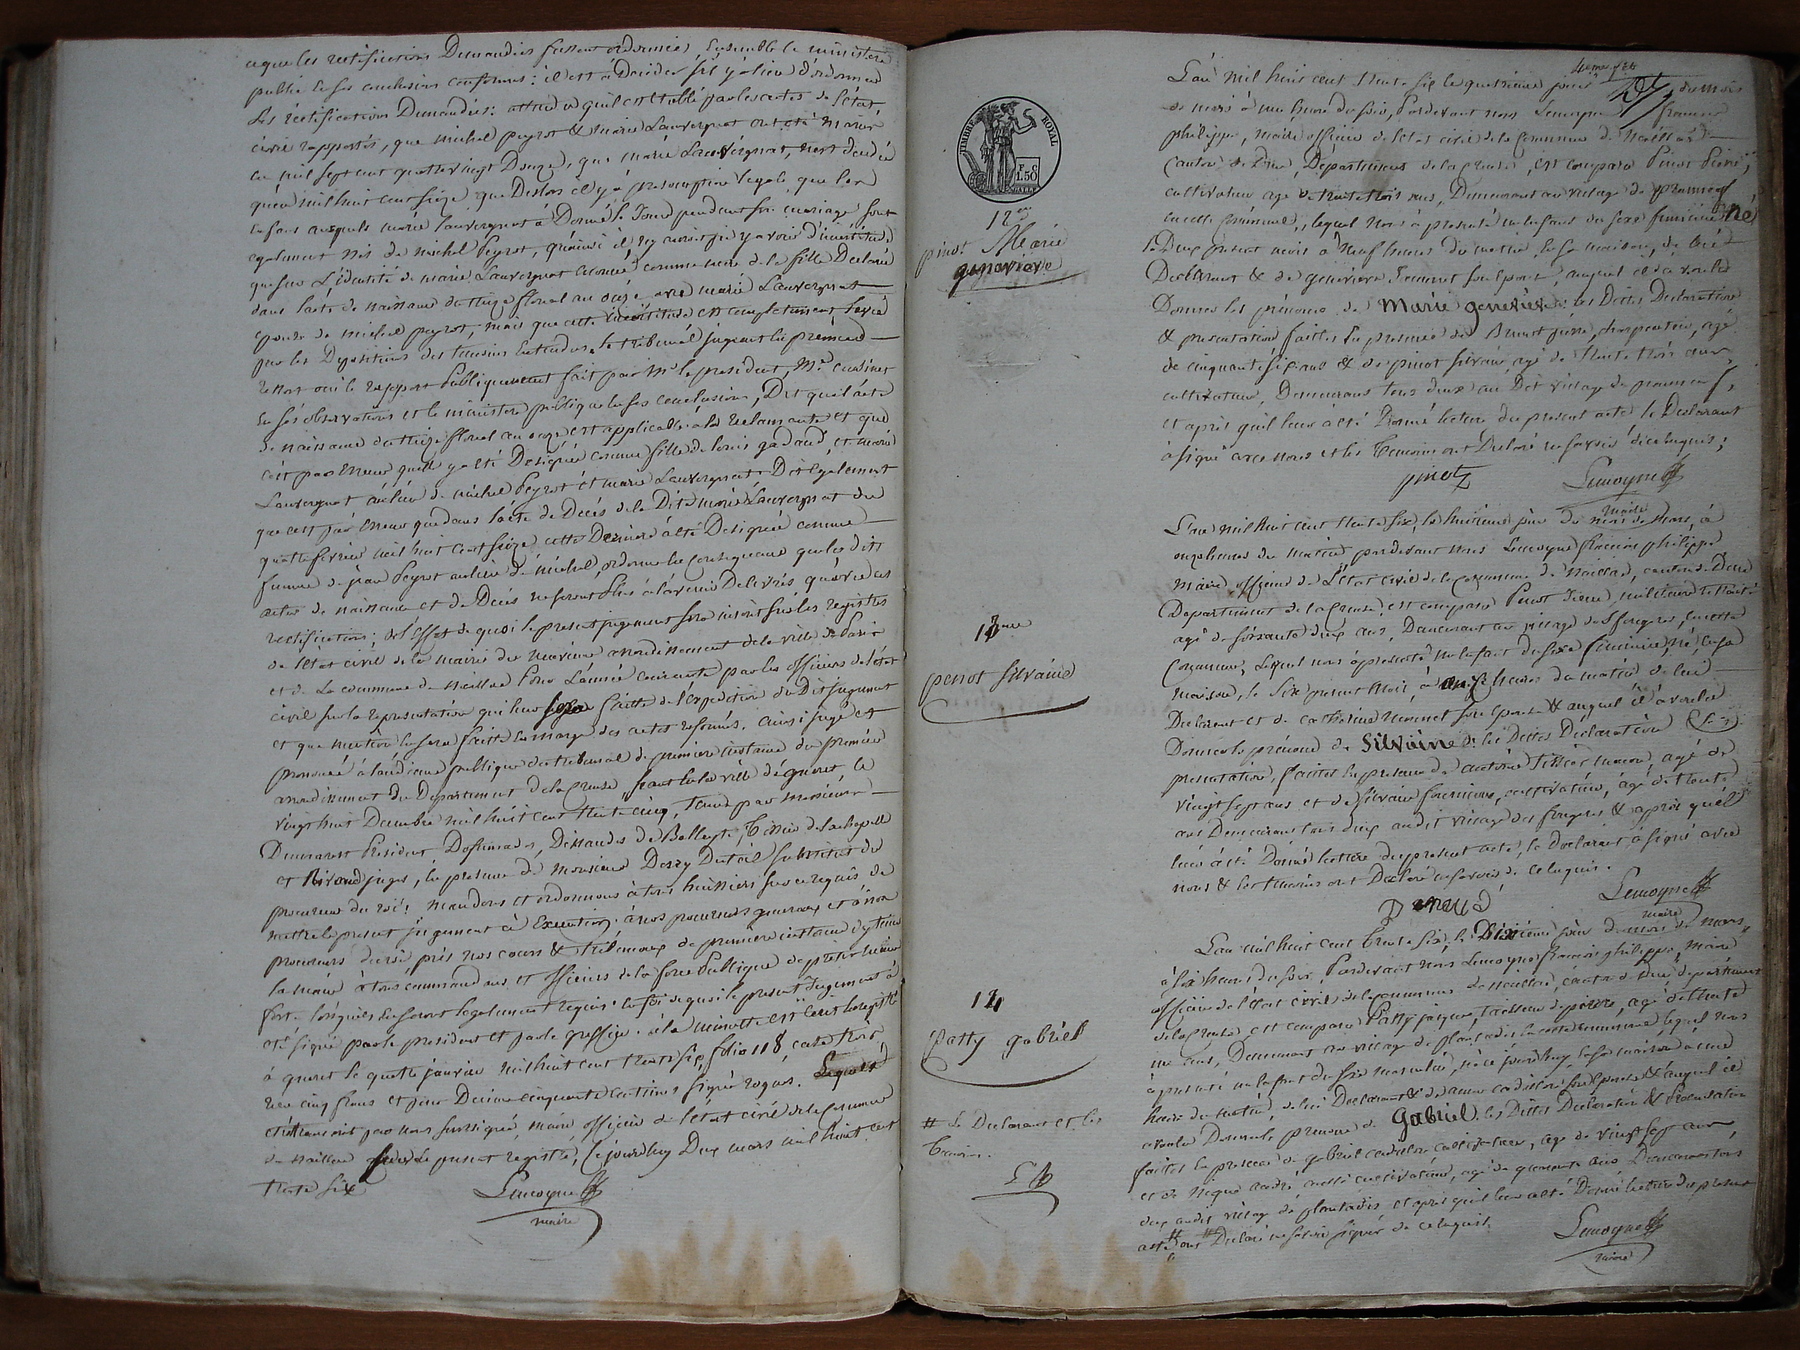 a que les rectifications Demandées fussent ordonnées, Ensemble le ministère
public En ses conclusions conformes: il est à Decider s'il y a lieu d'ordonner
Les rectifications Demandées: attendu qu'il est Etabli par les actes de l'état
civil rapportés, que michel peyrot & marie Lauvergnat ont été mariés
en mil sept cent quatre vingt Douze, que marie Lauvergnat, n'est decedée
qu'en mil huit cent seize que Deslors il y a presomption legale que les
enfans auxquels marie Lauvergnat à Donné le Jour pendant son mariage sont
egalement nés de michel Peyrot, qu'ainsi il n'y auroit
que sur L'identité de marie Lauvergnat comme mere de la fille Declarée
dans l'acte de naissance du treize floreal an onze avec marie Lauvergnat
epouse de michel peyrot, mais que cette incertitude est completement levée
par les Depositions des temoins Entendus. le tribunal jugeant en premier
ressort oui le rapport publiquement fait par Mr le president, Me
En ses observations et le ministere public en ses conclusions, Dit que l'acte
de naissance du treize floreal an onze est applicable à la reclamante et que
c'est par Erreur qu'elle y a été Designée comme fille de Louis gadaud, et marie
Lauvergnat au lieu de michel Peyrot et marie Lauvergnat. Dit egalement
que c'est par Erreur que dans l'acte de Décès de la Dite marie Lauvergnat du
quatre fevrier mil huit cent seize cette Derniere a été Designée comme
femme de jean Peyrot au lieu de michel, ordonne en consequence que les dits
actes de naissance et de Decès ne seront plus à l'avenir Delivrés qu'avec les
rectifications; à l'effet de quoi le present jugement sera inscrit sur les registres
de l'état civil de la mairie du arrondissement de la ville de Paris
et de La commune de naillat Pour L'année courante par les officiers de l'état
civil sur la representation qui leur sera faitte de l'expedition du Dit jugement
et que mention en sera faitte En marge des actes reformés. ainsi jugé et
prononcé à l'audience publique du tribunal de premiere instance du premier
arrondissement du Departement de la Creuse, seant en la ville de gueret, le
vingt huit Decembre mil huit cent trente cinq, Tenue par messieurs
President,
et juges, En presence de monsieur substitut du
procureur du roi: mandons et ordonnons à tous huissiers sur ce requis de
mettre le present jugement à Execution. à nos procureurs generaux et à nos
procureurs du roi, près nos cours & tribunaux de premiere instance d'y tenir
la main à tous commandans et officiers de la force Publique de preter main
forte lorsqu'ils En seront legalement requis. En foi de quoi le present Jugement à
été signé par le president et par le greffier. à la minutte est Ecrit Enregistré
à gueret le quatre janvier mil huit cent trente six, folio 118, case trois,
recu cinq francs et pour Decime cinquante centimes signé
par nous soussigné, maire, officier de l'etat civil de la Commune
de naillat sur le present registre, Ce jourdhuy Deux mars mil huit cent
trente six
Lemoyne
maire
TIMBRE ROYAL
F. C.
1.50
12me
pinot Marie
genevieve
13me
penot Silvaine
14
Patty Gabriel
# Le Declarant et les
temoins.
L'an Mil huit cent trente six le quatrieme jour du mois
de mars à une heure du soir, Pardevant nous Lemoyne francois
philippe, maire officier de l'etat civil de la Commune de Naillat
Canton de Dun, Departement de la Creuse, est comparu Pinot Pierre,
cultivateur agé de trente trois ans, Demeurant au village de
En cette Commune, lequel nous à presenté un Enfant du sexe feminin né
le Deux present mois à neuf heures du matin En sa maison, de lui
Declarant & de genevieve son Epouse, auquel il à voulu
Donner les prénoms de Marie genevieve. les Dittes Declaration
& presentation faittes En presence de pierre, charpentier, agé
de cinquante six ans & de pinot silvain, agé de trente trois ans,
cultivateur, Demeurans tous deux au Dit village de
et après qu'il leur à été Donné lecture du present acte le Declarant
à signé avec nous et les Temoins ont Declaré ne savoir de ce Enquis;
pinot
Lemoyne
maire
L'an mil huit cent trente six, le huitieme jour du mois de Mars, à
onze heures du matin pardevant nous Lemoyne francois philippe
Maire, officier de L'état civil de la Commune de Naillat, canton de Dun
Departement de la Creuse, est comparu Penot Pierre, militaire retraité
agé de soixante deux ans, Demeurant au village des fougeres, En cette
Commune, Lequel nous à presenté un Enfant du sexe feminin, né, En sa
maison, le Six present mois à onze heures du matin de lui
Declarant et de catherine son Epouse & auquel il à voulu
Donner le prénom de Silvaine les Dittes Declaration &
presentation, faittes En presence de antoine Tissier macon, agé de
vingt sept ans et de Silvain cultivateur, agé de trente
ans Demeurans tous deux au dit village des fougeres & après qu'il
leur à été Donné lecture du present acte, le Declarant à signé avec
nous & les temoins ont Declaré ne savoir de ce Enquis.
Lemoyne
maire
L'an mil huit cent trente six, le Dixieme jour du mois de mars,
à six heures du soir, Pardevant nous Lemoyne francois philippe, maire
officier de l'etat civil de la commune de naillat, canton de Dun, departement
de la Creuse, est comparu Patty jacques, tailleur de pierre, agé de trente
un ans, Demeurant au village de plantadis en cette commune lequel nous
à presenté un Enfant du sexe masculin, né ce jourdhuy, En sa maison à une
heure du matin, de lui Declarant & de anne son Epouse & auquel il
à voulu Donner le prénom de Gabriel. les Dittes Declaration & Presentation
faittes En presence de gabriel cultivateur, agé de vingt sept ans,
et de andré, aussi cultivateur, agé de quarante ans Demeurans tous
deux au dit village de plantadis et après qu'il leur à été Donné lecture du present
acte # ont Declaré ne savoir signer de ce Enquis.
Lemoyne
maire